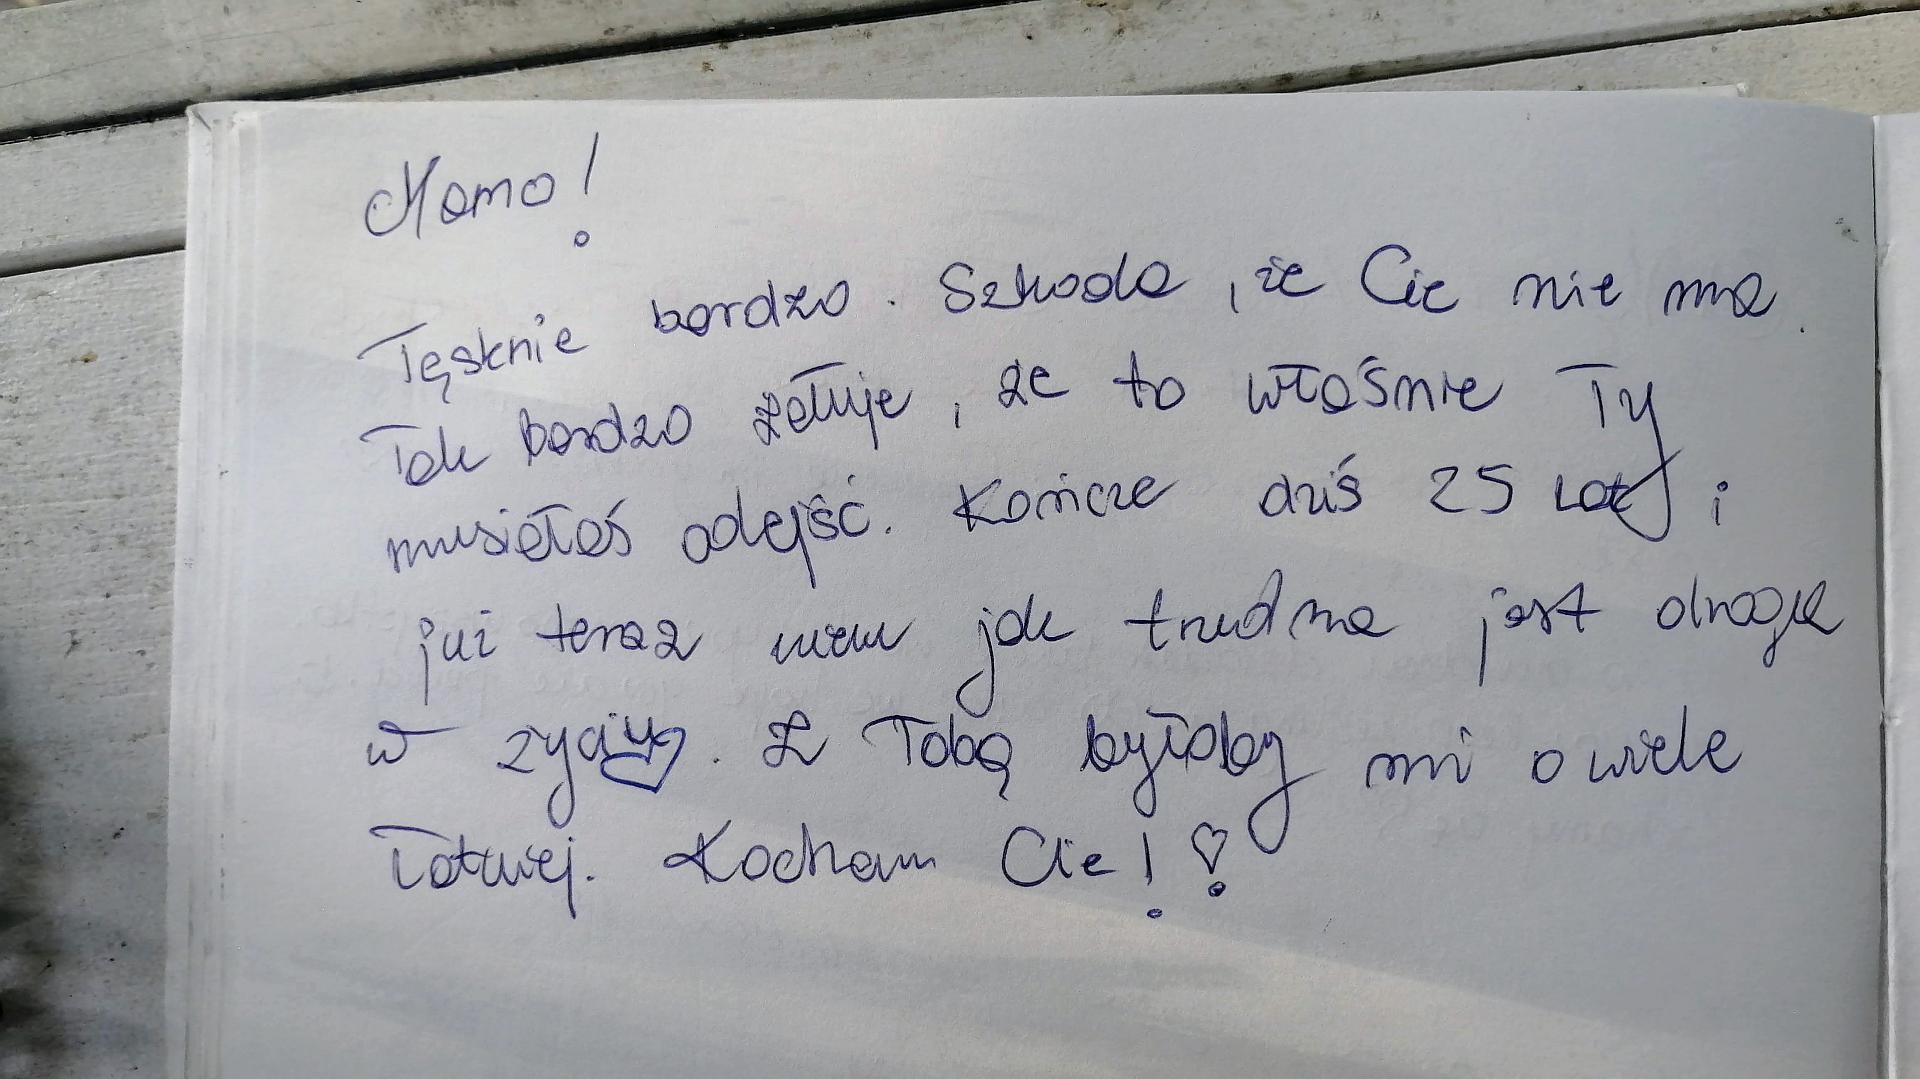 Mamo!
Tęsknie bardzo. Szkoda, że Cie nie ma.
Tak bardzo żałuje, że to właśnie Ty
musiałaś odejść. Kończe dziś 25 lat i
już teraz wiem jak trudna jest droga
w życiu. Z Tobą byłoby mi o wiele
łatwiej. Kocham Cie!